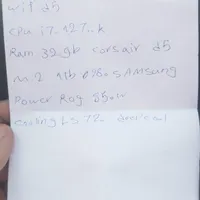 wif d5
cpu i7.127..k
Ram 32 gb corsair d5
m.2 1tb SAMSung
Power 850w
cooling LS 720